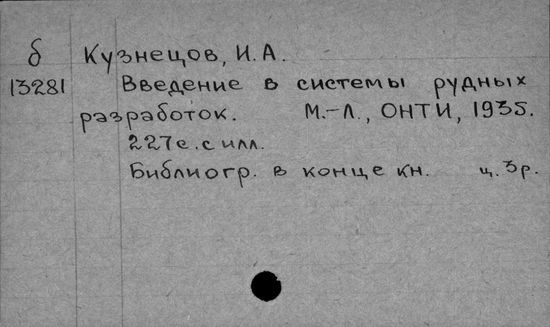 б Кузнецов, И.А.
13281 Введение в системы рудных
разработок. М.-Л., ОНТИ, 1935.
227с. с илл.
Библиогр. в конце кн. ц. 3р.